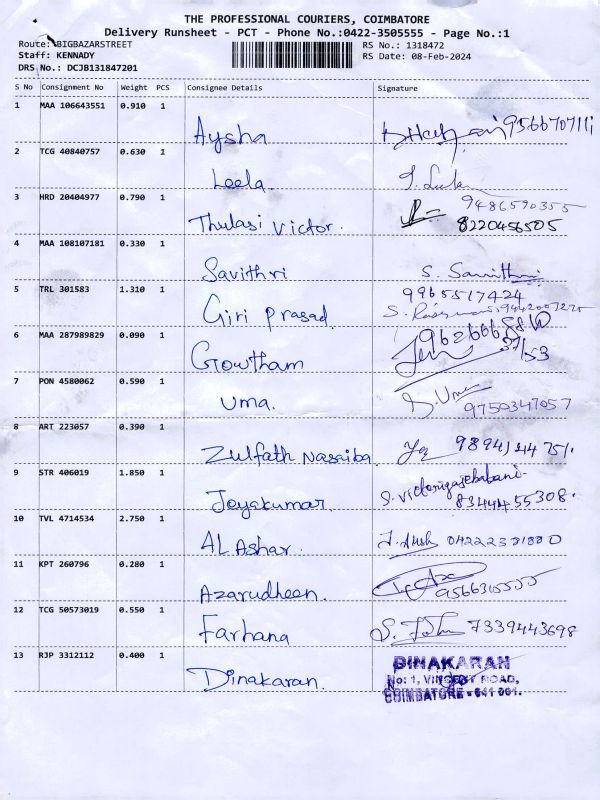 THE PROFESSIONAL COURIERS, COIMBATORE
Delivery Runsheet - PCT - Phone No.:0422-3505555 - Page No.:1
Route: BIGBAZARSTREET
RS No.: 1318472
Staff: KENNADY
RS Date: 08-Feb-2024
DRS No.: DCJB131847201
S No Consignment No Weight PCS Consignee Details Signature
1 MAA 106643551 0.910 1
Aysha 9566707111
2 TCG 40840757 0.630 1
Leela
3 HRD 20404977 0.790 1
9486590355
Thulasi Victor. 8220456505
4 MAA 108107181 0.330 1
Savithri S. Savithri
5 TRL 301583 1.310 1
9965517424
Giri Prasad
6 MAA 287989829 0.090 1
Gowtham
7 PON 4580062 0.590 1
Uma. S. Uma
9750347057
8 ART 223057 0.390 1
Zulfath Nasaiba
9 STR 406019 1.850 1
Jeyakumar. 8344455308.
10 TVL 4714534 2.750 1
AL Ashar.
11 KPT 260796 0.280 1
Azarudheen.
12 TCG 50573019 0.550 1
Farhana 7339443698
13 RJP 3312112 0.400 1
Dinakaran.
DINAKARAN
No: 1, VINCENT ROAD,
COIMBATORE - 641 001.